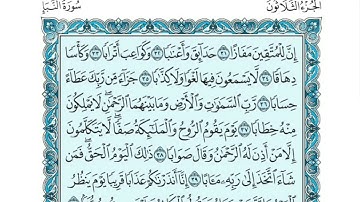 سُورَةُ النَّبَإِ
الجُزْءُ الثَّلَاثُونَ
إِنَّ لِلْمُتَّقِينَ مَفَازًا ٣١ حَدَائِقَ وَأَعْنَابًا ٣٢ وَكَوَاعِبَ أَتْرَابًا ٣٣ وَكَأْسًا
دِهَاقًا ٣٤ لَّا يَسْمَعُونَ فِيهَا لَغْوًا وَلَا كِذَّابًا ٣٥ جَزَاءً مِّن رَّبِّكَ عَطَاءً
حِسَابًا ٣٦ رَّبِّ السَّمَٰوَٰتِ وَالْأَرْضِ وَمَا بَيْنَهُمَا الرَّحْمَٰنِ ۖ لَا يَمْلِكُونَ
مِنْهُ خِطَابًا ٣٧ يَوْمَ يَقُومُ الرُّوحُ وَالْمَلَٰئِكَةُ صَفًّا ۖ لَّا يَتَكَلَّمُونَ
إِلَّا مَنْ أَذِنَ لَهُ الرَّحْمَٰنُ وَقَالَ صَوَابًا ٣٨ ذَٰلِكَ الْيَوْمُ الْحَقُّ ۖ فَمَن
شَاءَ اتَّخَذَ إِلَىٰ رَبِّهِ مَـَٔابًا ٣٩ إِنَّا أَنذَرْنَٰكُمْ عَذَابًا قَرِيبًا يَوْمَ يَنظُرُ